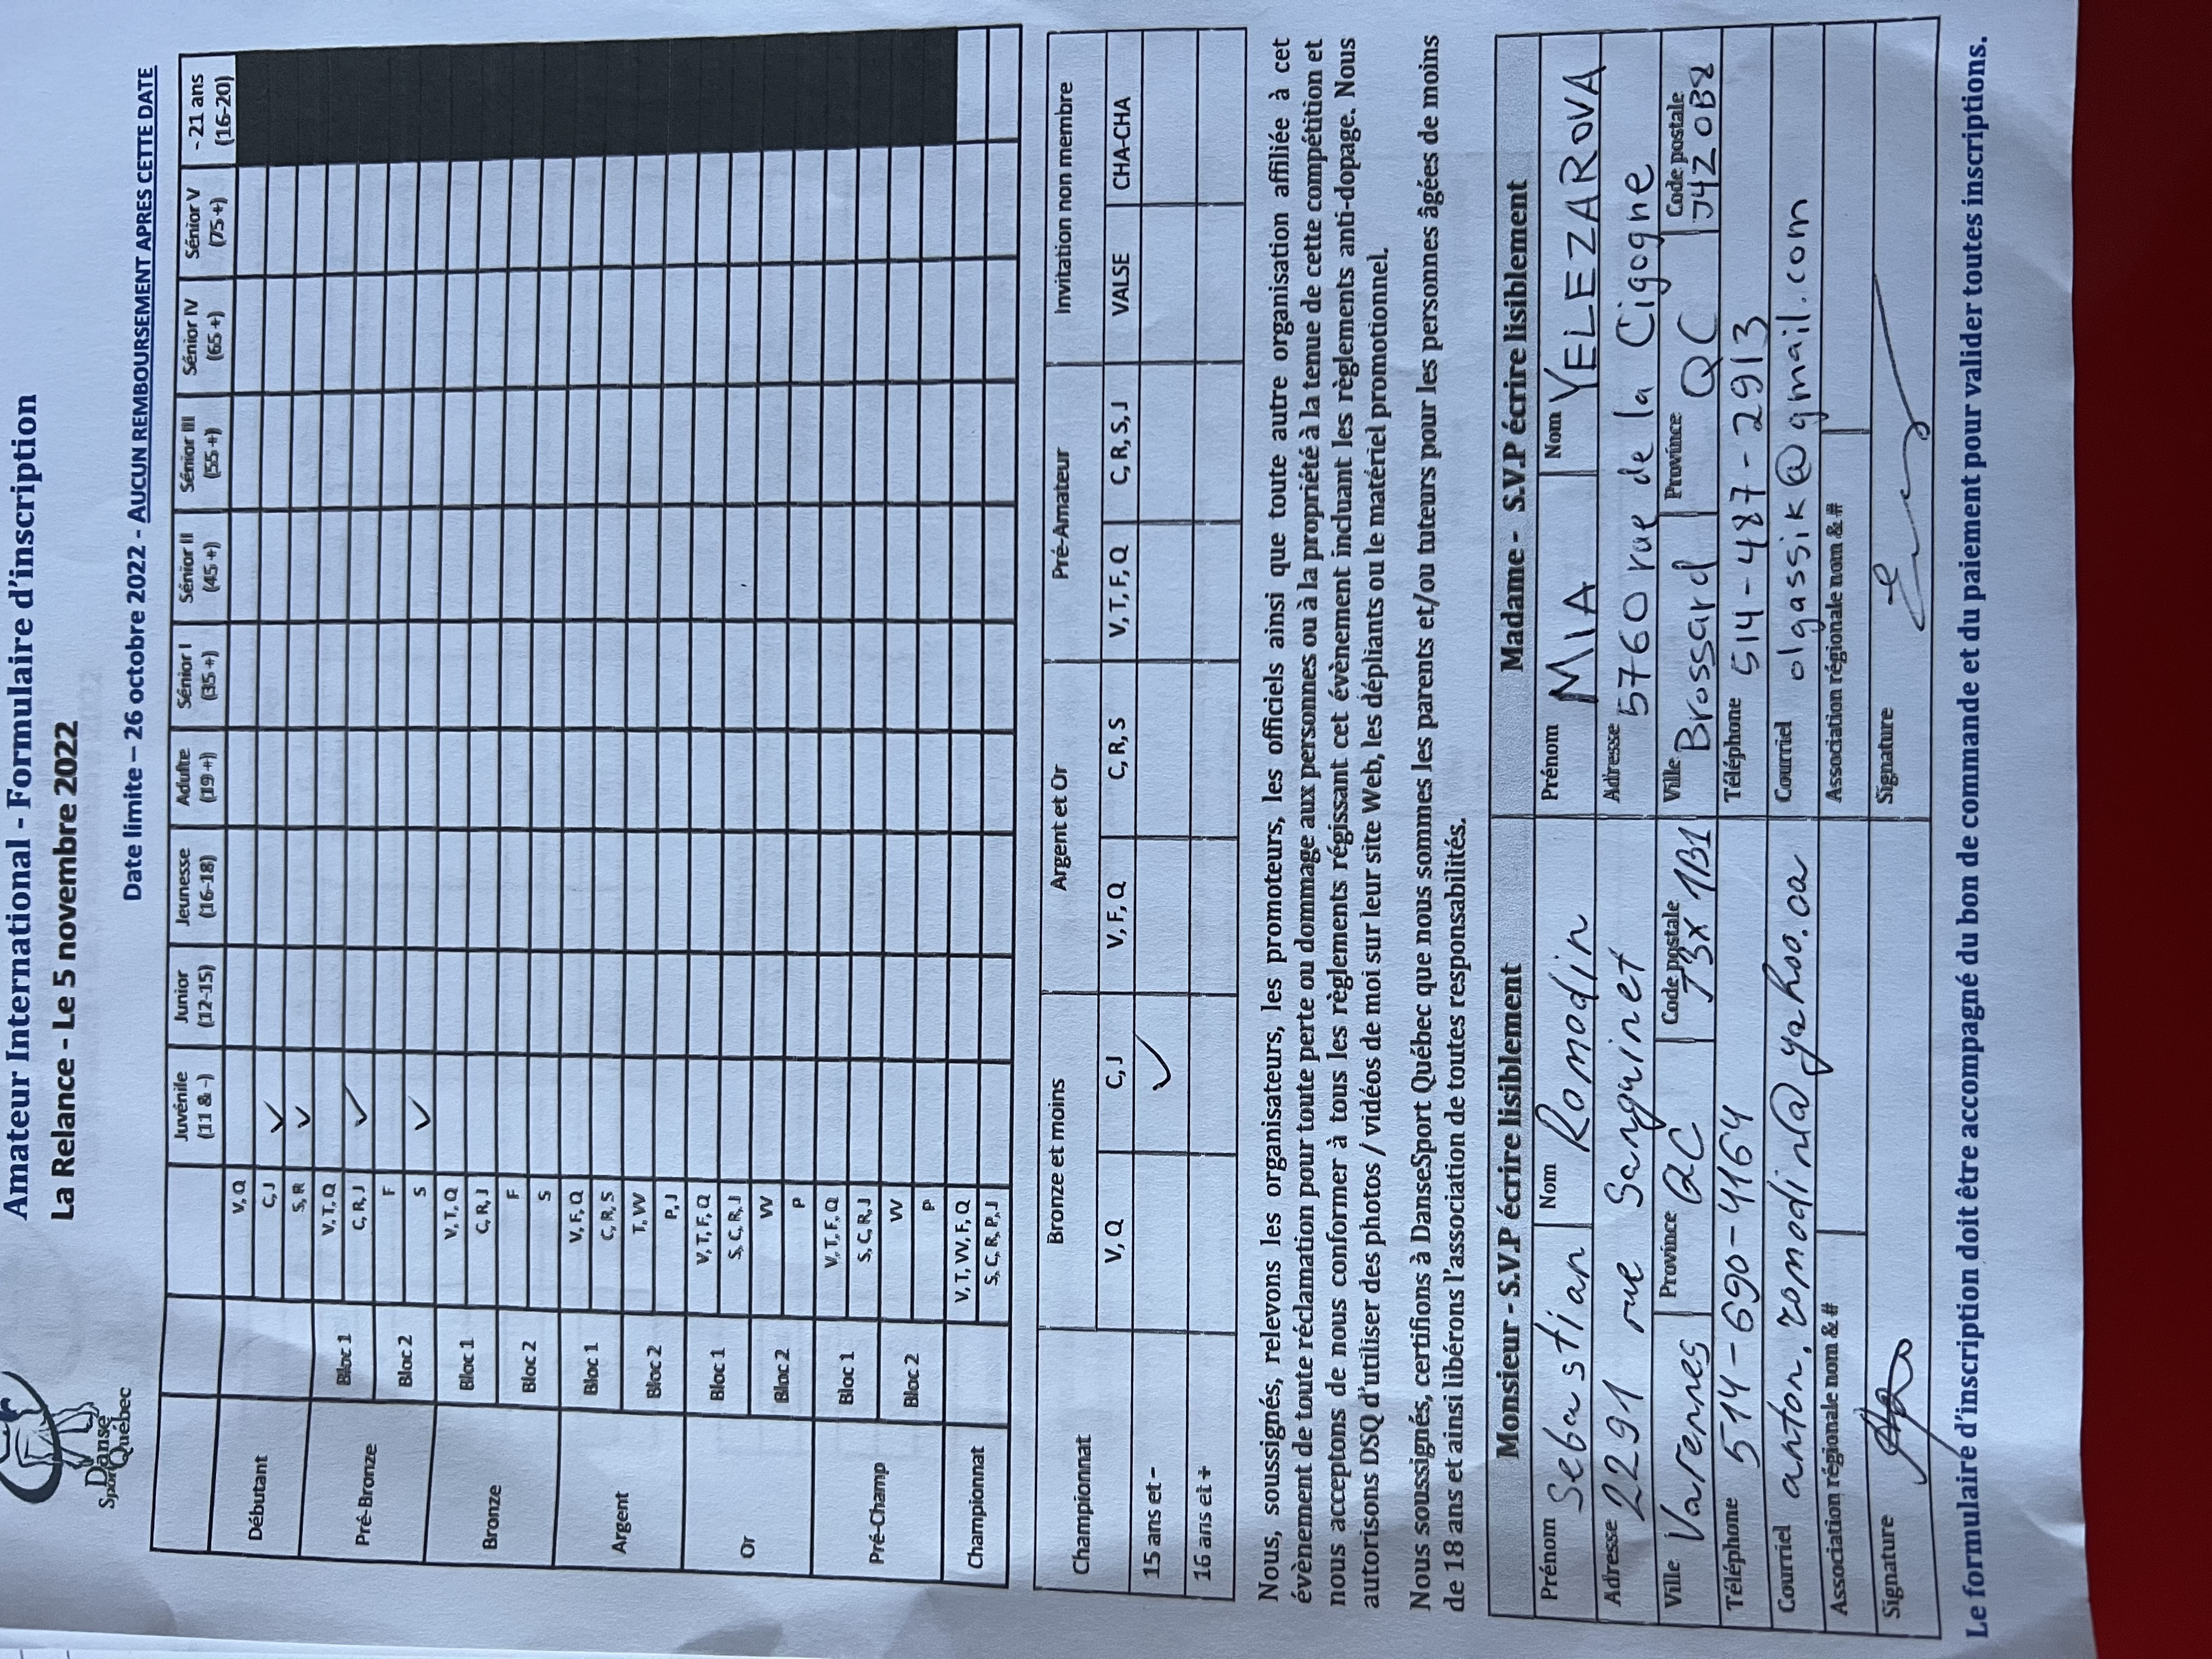 Amateur International - Formulaire d'inscription
La Relance - Le 5 novembre 2022
Danse
Sport
Québec
Date limite – 26 octobre 2022 - AUCUN REMBOURSEMENT APRES CETTE DATE
Juvénile (11 & -) Junior (12-15) Jeunesse (16-18) Adulte (19 +) Sénior I (35 +) Sénior II (45 +) Sénior III (55 +) Sénior IV (65 +) Sénior V (75 +) - 21 ans (16-20)
Débutant
V, Q
C, J ✓
S, R ✓
Pré-Bronze
Bloc 1
V, T, Q
C, R, J ✓
Bloc 2
F
S ✓
Bronze
Bloc 1
V, T, Q
C, R, J
Bloc 2
F
S
Argent
Bloc 1
V, F, Q
C, R, S
Bloc 2
T, W
P, J
Or
Bloc 1
V, T, F, Q
S, C, R, J
Bloc 2
W
P
Pré-Champ
Bloc 1
V, T, F, Q
S, C, R, J
Bloc 2
W
P
Championnat
V, T, W, F, Q
S, C, R, P, J
Championnat
Bronze et moins Argent et Or Pré-Amateur Invitation non membre
V, Q C, J V, F, Q C, R, S V, T, F, Q C, R, S, J VALSE CHA-CHA
15 ans et - ✓
16 ans et +
Nous, soussignés, relevons les organisateurs, les promoteurs, les officiels ainsi que toute autre organisation affiliée à cet
évènement de toute réclamation pour toute perte ou dommage aux personnes ou à la propriété à la tenue de cette compétition et
nous acceptons de nous conformer à tous les règlements régissant cet évènement incluant les règlements anti-dopage. Nous
autorisons DSQ d'utiliser des photos / vidéos de moi sur leur site Web, les dépliants ou le matériel promotionnel.
Nous soussignés, certifions à DanseSport Québec que nous sommes les parents et/ou tuteurs pour les personnes âgées de moins
de 18 ans et ainsi libérons l'association de toutes responsabilités.
Monsieur - S.V.P écrire lisiblement Madame - S.V.P écrire lisiblement
Prénom Sebastian Nom Romodin Prénom MIA Nom YELEZAROVA
Adresse 2291 rue Sanguinet Adresse 5760 rue de la Cigogne
Ville Varennes Province QC Code postale J3X 1B1 Ville Brossard Province QC Code postale J4Z 0B8
Téléphone 514-690-4164 Téléphone 514-487-2913
Courriel anton.romodin@yahoo.ca Courriel olgassik@gmail.com
Association régionale nom & # Association régionale nom & #
Signature Signature
Le formulaire d'inscription doit être accompagné du bon de commande et du paiement pour valider toutes inscriptions.